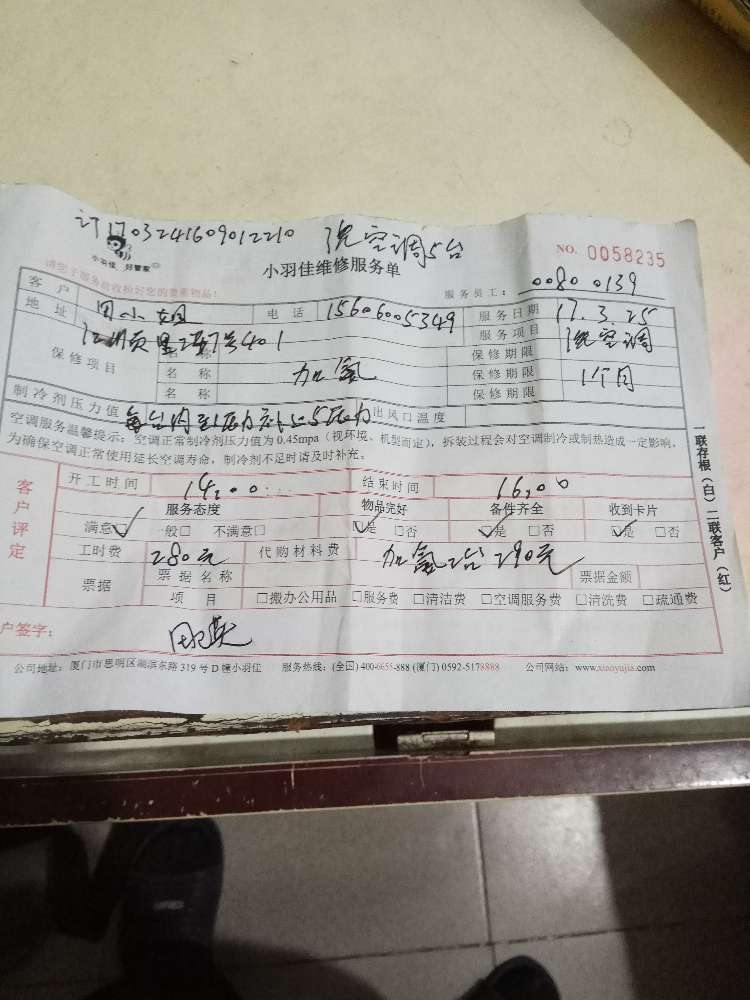 订170324169012210 洗空调5台
小羽佳 好管家
NO. 0058235
小羽佳维修服务单
请您于服务前收检好您的贵重物品!
服务员工: 0080 0139
客户 田小姐 电话 15606005349 服务日期 17.3.25
地址 里 7号401 服务项目 洗空调
保修项目 名称 保修期限
名称 加氟 保修期限 1个月
名称 保修期限
制冷剂压力值 出风口温度
空调服务温馨提示:空调正常制冷剂压力值为0.45mpa(视环境、机型而定),拆装过程会对空调制冷或制热造成一定影响,
为确保空调正常使用延长空调寿命,制冷剂不足时请及时补充。
客户评定
开工时间 14:00 结束时间 16:00
服务态度 物品完好 备件齐全 收到卡片
满意☑ 一般□ 不满意□ ☑是 □否 ☑是 □否 ☑是 □否
工时费 280元 代购材料费 加氟2台290元
票据 票据名称 票据金额
项目 □搬办公用品 □服务费 □清洁费 □空调服务费 □清洗费 □疏通费
户签字:
公司地址:厦门市思明区湖滨东路319号D幢小羽佳 服务热线:(全国)400-6655-888 (厦门)0592-5178888 公司网站:www.xiaoyujia.com
一联存根(白)二联客户(红)